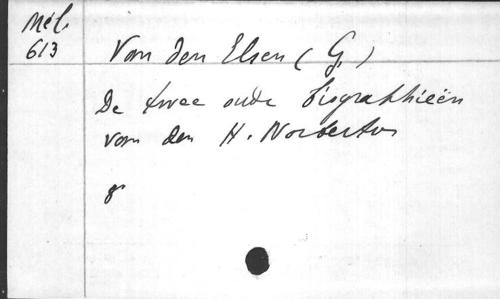 Mél.
613
Van den Elsen (G.)
De twee oude biographieën
van den H. Norbertus
8°